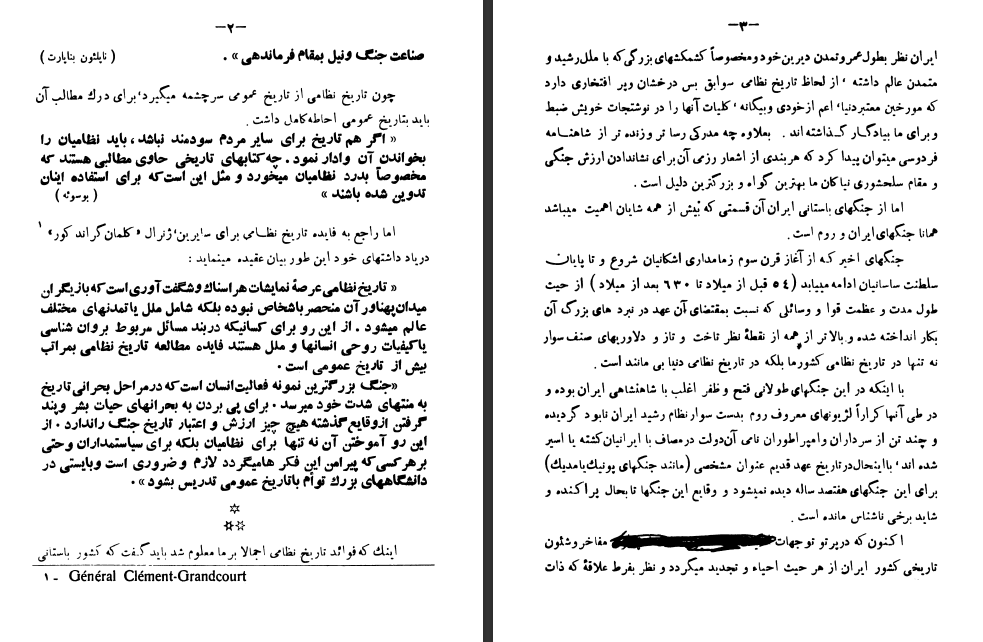 —۲—
صناعت جنگ ونیل بمقام فرماندهی» . ( ناپلئون بناپارت )
چون تاریخ نظامی از تاریخ عمومی سرچشمه میگیرد، برای درك مطالب آن
باید بتاریخ عمومی احاطه کامل داشت .
« اگر هم تاریخ برای سایر مردم سودمند نباشد، باید نظامیان را
بخواندن آن وادار نمود. چه کتابهای تاریخی حاوی مطالبی هستند که
مخصوصاً بدرد نظامیان میخورد و مثل این است که برای استفاده اینان
تدوین شده باشند » ( بوسوئه )
اما راجع به فایده تاریخ نظامی برای سایرین، ژنرال «کلمان گراند کور» ۱
دریاد داشتهای خود این طور بیان عقیده مینماید :
« تاریخ نظامی عرصهٔ نمایشات هراسناك وشگفت آوری است که بازیگران
میدان پهناور آن منحصر باشخاص نبوده بلکه شامل ملل یا تمدنهای مختلف
عالم میشود . از این رو برای کسانیکه دربند مسائل مربوط بروان شناسی
یا کیفیات روحی انسانها و ملل هستند فایده مطالعه تاریخ نظامی بمراتب
بیش از تاریخ عمومی است .
«جنگ بزرگترین نمونه فعالیت انسان است که درمراحل بحرانی تاریخ
به منتهای شدت خود میرسد. برای پی بردن به بحرانهای حیات بشر وپند
گرفتن ازوقایع گذشته هیچ چیز ارزش و اعتبار تاریخ جنگ راندارد. از
این رو آموختن آن نه تنها برای نظامیان بلکه برای سیاستمداران وحتی
برهر کسی که پیرامن این فکر هامیگردد لازم و ضروری است وبایستی در
دانشگاههای بزرك توأم با تاریخ عمومی تدریس بشود» .
اینك که فوائد تاریخ نظامی اجمالا بر ما معلوم شد باید گفت که کشور باستانی
۱ - Général Clément-Grandcourt
—۳—
ایران نظر بطول عمر وتمدن دیرین خود ومخصوصاً کشمکشهای بزرگی که با ملل رشید و
متمدن عالم داشته ، از لحاظ تاریخ نظامی سوابق بس درخشان وپر افتخاری دارد
که مورخین معتبر دنیا، اعم از خودی وبیگانه، کلیات آنها را در نوشتجات خویش ضبط
و برای ما بیادگار گذاشته اند . بعلاوه چه مدرکی رسا تر و زنده تر از شاهنامه
فردوسی میتوان پیدا کرد که هر بندی از اشعار رزمی آن برای نشاندادن ارزش جنگی
و مقام سلحشوری نیاکان ما بهترین گواه و بزرگترین دلیل است .
اما از جنگهای باستانی ایران آن قسمتی که بیش از همه شایان اهمیت میباشد
همانا جنگهای ایران و روم است .
جنگهای اخیر که از آغاز قرن سوم زمامداری اشکانیان شروع و تا پایان
سلطنت ساسانیان ادامه مییابد (٥٤ قبل از میلاد تا ٦٣٠ بعد از میلاد ) از حیث
طول مدت و عظمت قوا و وسائلی که نسبت بمقتضای آن عهد در نبرد های بزرگ آن
بکار انداخته شده و بالا تر از همه از نقطهٔ نظر تاخت و تاز و دلاوریهای صنف سوار
نه تنها در تاریخ نظامی کشورما بلکه در تاریخ نظامی دنیا بی مانند است .
با اینکه در این جنگهای طولانی فتح و ظفر اغلب با شاهنشاهی ایران بوده و
در طی آنها کراراً لژیونهای معروف روم بدست سوار نظام رشید ایران نابود گردیده
و چند تن از سرداران وامپراطوران نامی آن دولت در مصاف با ایرانیان کشته یا اسیر
شده اند، با اینحال در تاریخ عهد قدیم عنوان مشخصی (مانند جنگهای پونیك یا مدیك)
برای این جنگهای هفتصد ساله دیده نمیشود و وقایع این جنگها تا بحال پراکنده و
شاید برخی ناشناس مانده است .
اکنون که در پرتو توجهات مفاخر وشئون
تاریخی کشور ایران از هر حیث احیاء و تجدید میگردد و نظر بفرط علاقهٔ که ذات